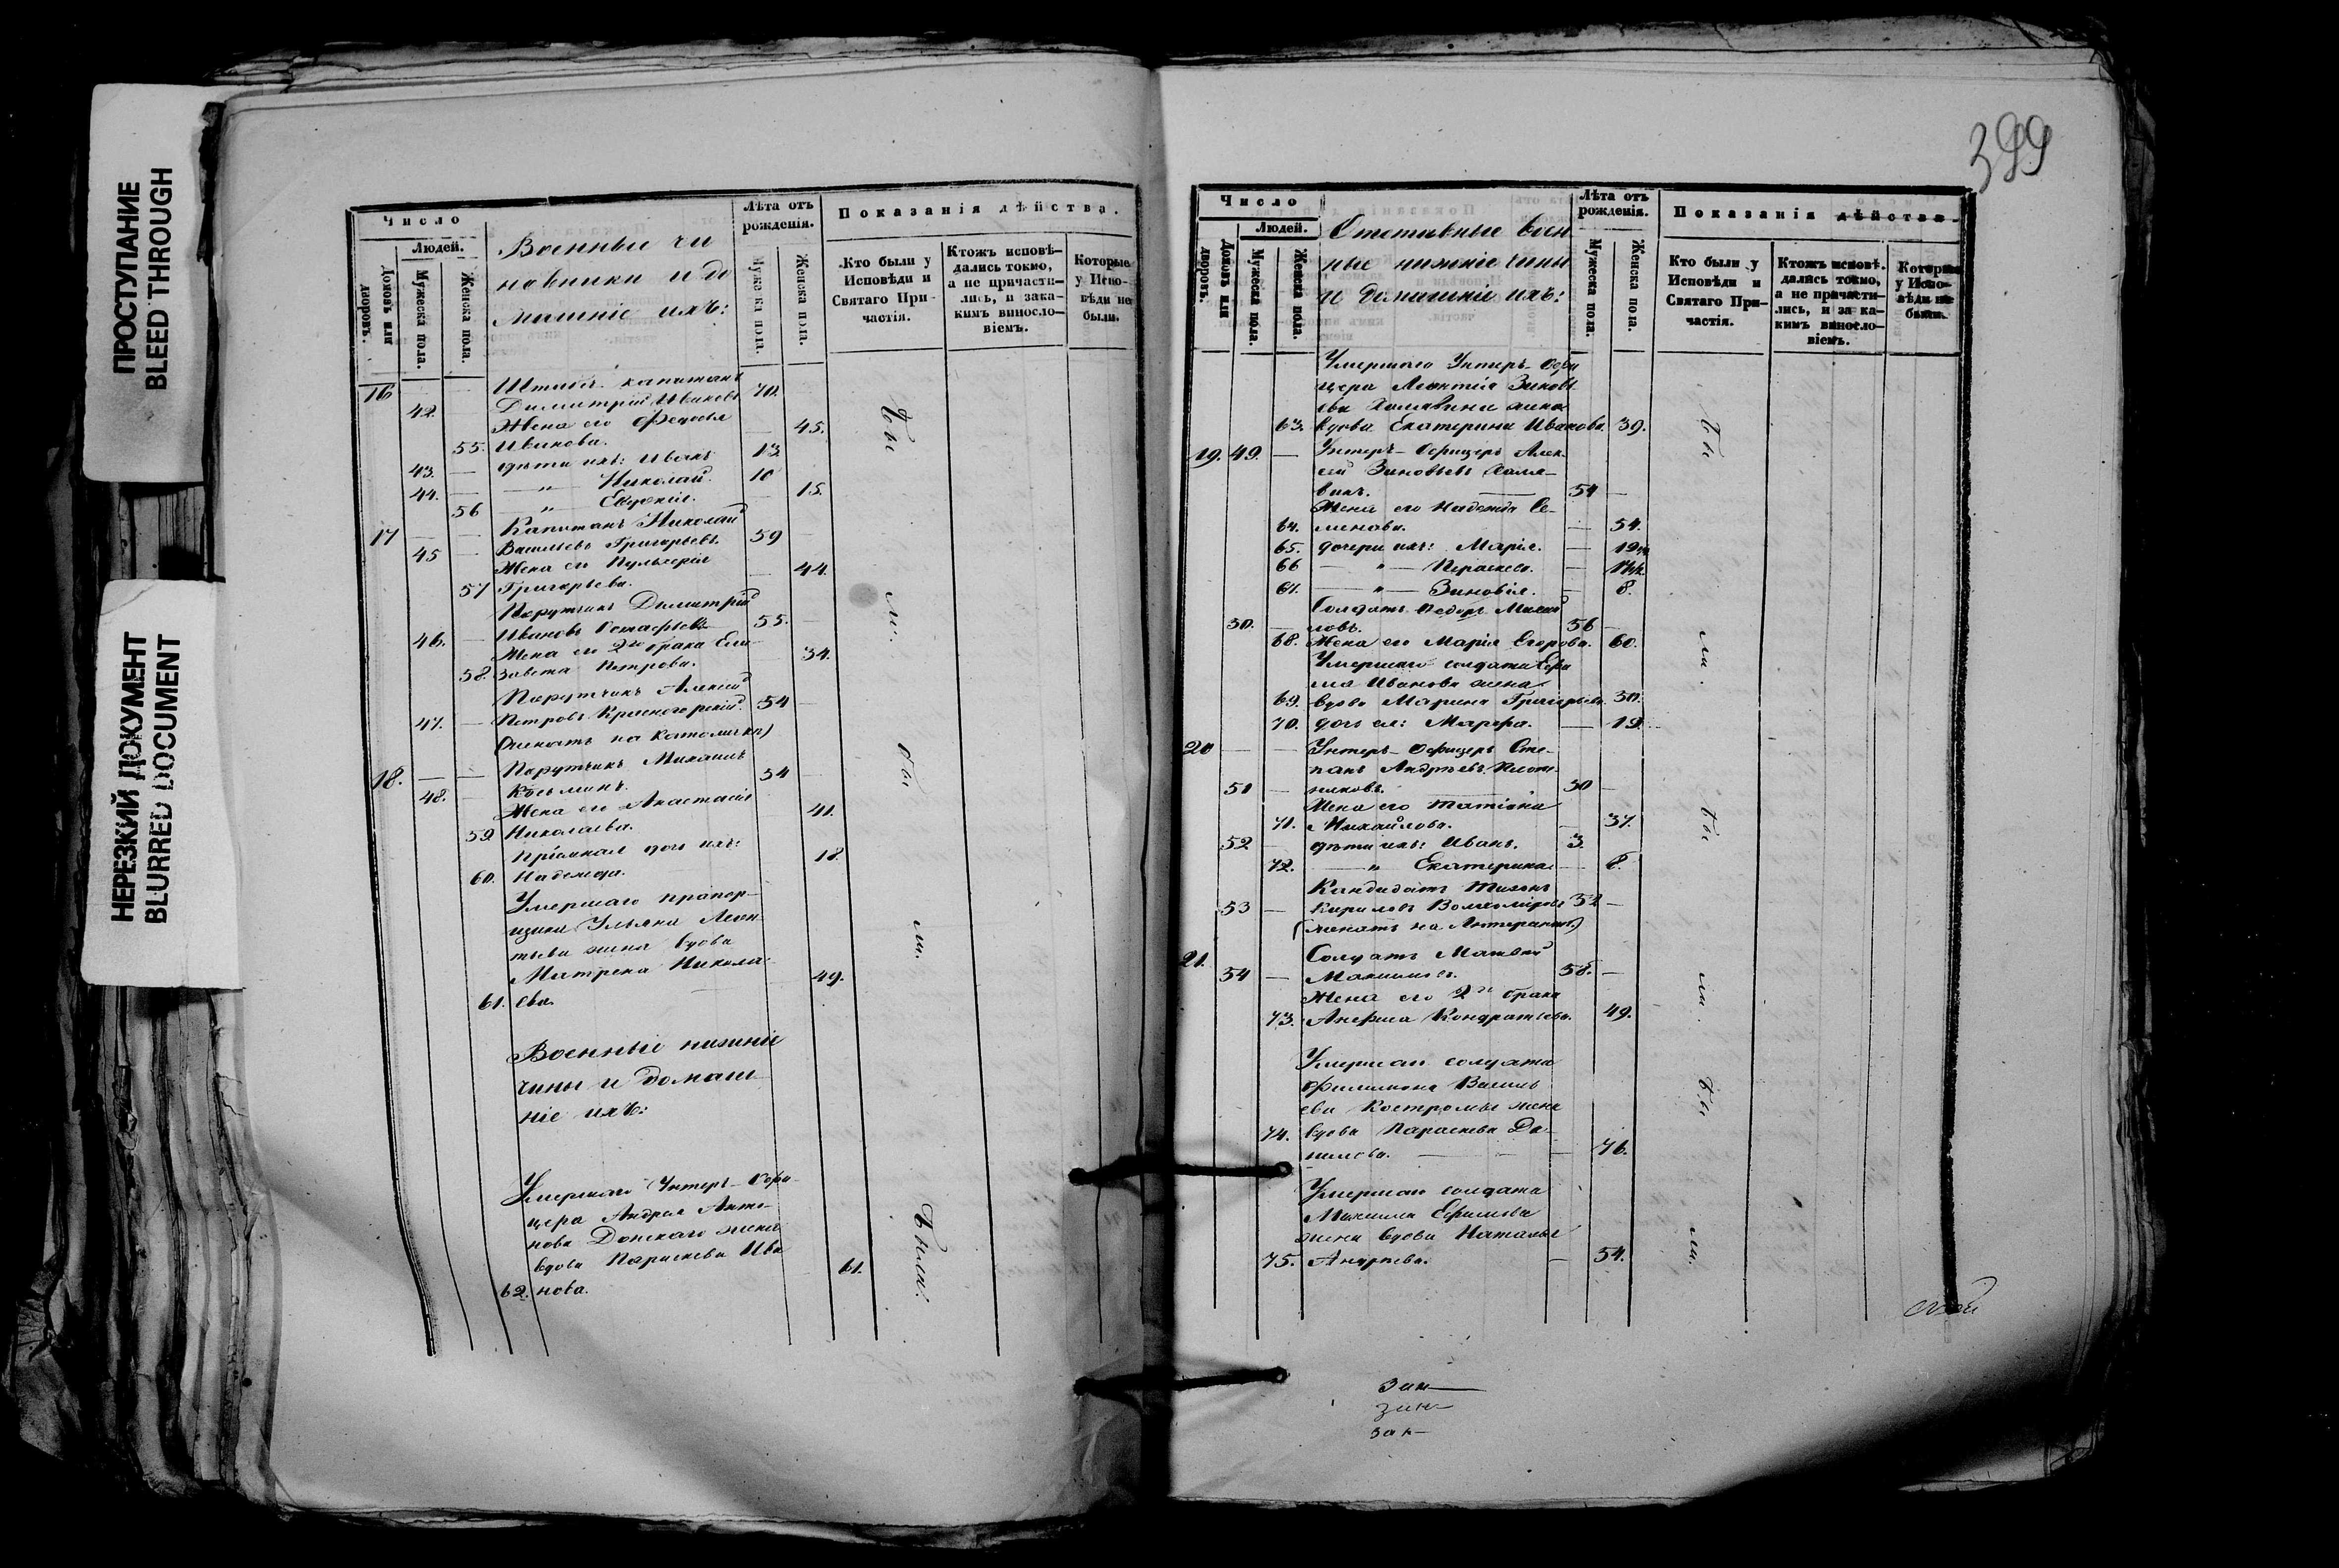 ПРОСТУПАНИЕ
BLEED THROUGH
НЕРЕЗКИЙ ДОКУМЕНТ
BLURRED DOCUMENT
Число
Людей.
Домовъ или дворовъ.
Мужеска пола.
Женска пола.
Военные чи
новники и до
машніе ихъ:
Лѣта отъ
рожденія.
Мужеска пола.
Женска пола.
Показанія дѣйства.
Кто были у
Исповѣди и
Святаго При-
частія.
Ктожъ исповѣ-
дались токмо,
а не причасти-
лись, и зака-
кимъ винослo-
віемъ.
Которые
у Испо-
вѣди не
были.
16 Штабсъ-капитанъ
42. Димитрій Ивановъ 70.
Жена его Федосья
55. Иванова. 45.
43. дѣти ихъ: Иванъ 13
44. " Николай. 10
56 " Евдокія. 15.
17 Капитанъ Николай
45 Васильевъ Григорьевъ. 59
Жена его Пульхерія
57 Григорьева. 44.
Порутчикъ Димитрій
46. Ивановъ Остафьевъ 55.
Жена его 2го брака Ели-
58. завета Петрова. 34.
Порутчикъ Алексій
47. Петровъ Красногорскій. 54
(женатъ на католичкѣ)
18. Порутчикъ Михаилъ
48. Козьминъ. 54
Жена его Анастасія
59 Николаева. 41.
Пріемная дочь ихъ:
60. Надежда. 18.
Умершаго прапор-
щика Ульяна Леон-
тьева жена вдова
Матрена Никола-
61. ева. 49.
Военные нижніе
чины и домаш-
ніе ихъ:
Умершаго Унтеръ-Офи-
цера Андрея Анто-
нова Донскаго жена
вдова Параскева Ива
62. нова. 61.
Бы
ли.
бы
ли.
Были.
399
Число
Людей.
Домовъ или дворовъ.
Мужеска пола.
Женска пола.
Отставные воен
ные нижніе чины
и домашніе ихъ:
Лѣта отъ
рожденія.
Мужеска пола.
Женска пола.
Показанія дѣйства.
Кто были у
Исповѣди и
Святаго При-
частія.
Ктожъ исповѣ-
дались токмо,
а не причасти-
лись, и за ка-
кимъ винослo-
віемъ.
Которые
у Испо-
вѣди не
были.
Умершаго Унтеръ-Офи
цера Леонтія Зиновь
ева Халявина жена
63. вдова Екатерина Иванова. 39.
19. 49. Унтеръ-Офицеръ Алек-
сѣй Зиновьевъ Халя-
винъ. 54
Жена его Надежда Се-
64. менова. 54.
65. дочери ихъ: Марія. 19
66 " Параскева.
67. " Зиновія. 8.
Солдатъ Ѳедоръ Михай
50. ловъ. 56
68. Жена его Марія Егорова. 60.
Умершаго солдата Ефи
ма Иванова жена
69. вдова Марина Григорьева 50.
70. дочь ея: Марфа. 19.
20 Унтеръ-Офицеръ Сте-
панъ Андреевъ Плот-
51 никовъ. 50
Жена его Татіана
71. Михайлова. 37.
52 дѣти ихъ: Иванъ. 3
72. " Екатерина 8.
Кандидатъ Тихонъ
53 Кириловъ 32
(женатъ на Лютеранкѣ)
21. Солдатъ Матвѣй
54 Максимовъ. 58.
Жена его 2го брака
73. Анфиса Кондратьева. 49.
Умершаго солдата
Филимона Василь
ева Костромы жена
74. вдова Параскева Да-
нилова. 76.
Умершаго солдата
Максима Ефимова
жена вдова Наталья
75. Андреева. 54.
Бы
ли.
Бы
ли.
Бы
ли.
зак
зак
зак